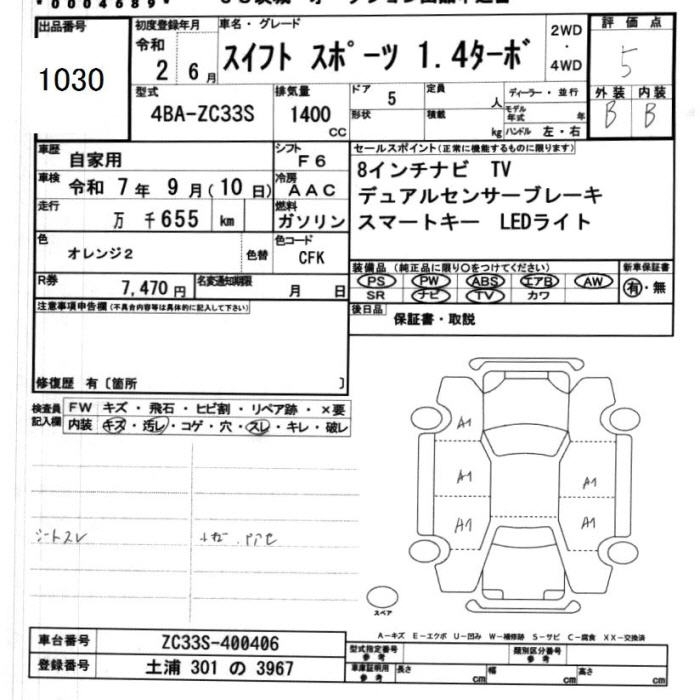 *0004689*
出品番号
1030
初度登録年月
令和
2 6月
車名・グレード
スイフト スポーツ 1.4ターボ
2WD
・
4WD
評価点
5
外装 内装
B B
型式
4BA-ZC33S
排気量
1400
CC
ドア
5
形状
定員
人
積載
kg
ディーラー・並行
モデル年式 年
ハンドル 左・右
車歴
自家用
シフト
F6
車検
令和 7年 9月(10日)
冷房
AAC
走行
万 千655 km
燃料
ガソリン
色
オレンジ2
色替
色コード
CFK
R券
7,470 円
名変通知期限
月 日
セールスポイント(正常に機能するものに限ります)
8インチナビ TV
デュアルセンサーブレーキ
スマートキー LEDライト
装備品(純正品に限り〇をつけてください)
PS PW ABS エアB AW
SR ナビ TV カワ
新車保証書
有・無
後日品
保証書・取説
注意事項申告欄(不具合内容等は具体的に記入して下さい)
修復歴 有〔箇所 〕
検査員記入欄
FW キズ・飛石・ヒビ割・リペア跡・×要
内装 キズ・汚レ・コゲ・穴・スレ・キレ・破レ
シートスレ
A1
A1
A1
A1
A1
スペア
A-キズ E-エクボ U-凹み W-補修跡 S-サビ C-腐食 XX-交換済
車台番号
ZC33S-400406
登録番号
土浦 301 の 3967
型式指定番号
参考
類別区分番号
参考
車庫証明用
参考
長さ cm
幅 cm
高さ cm